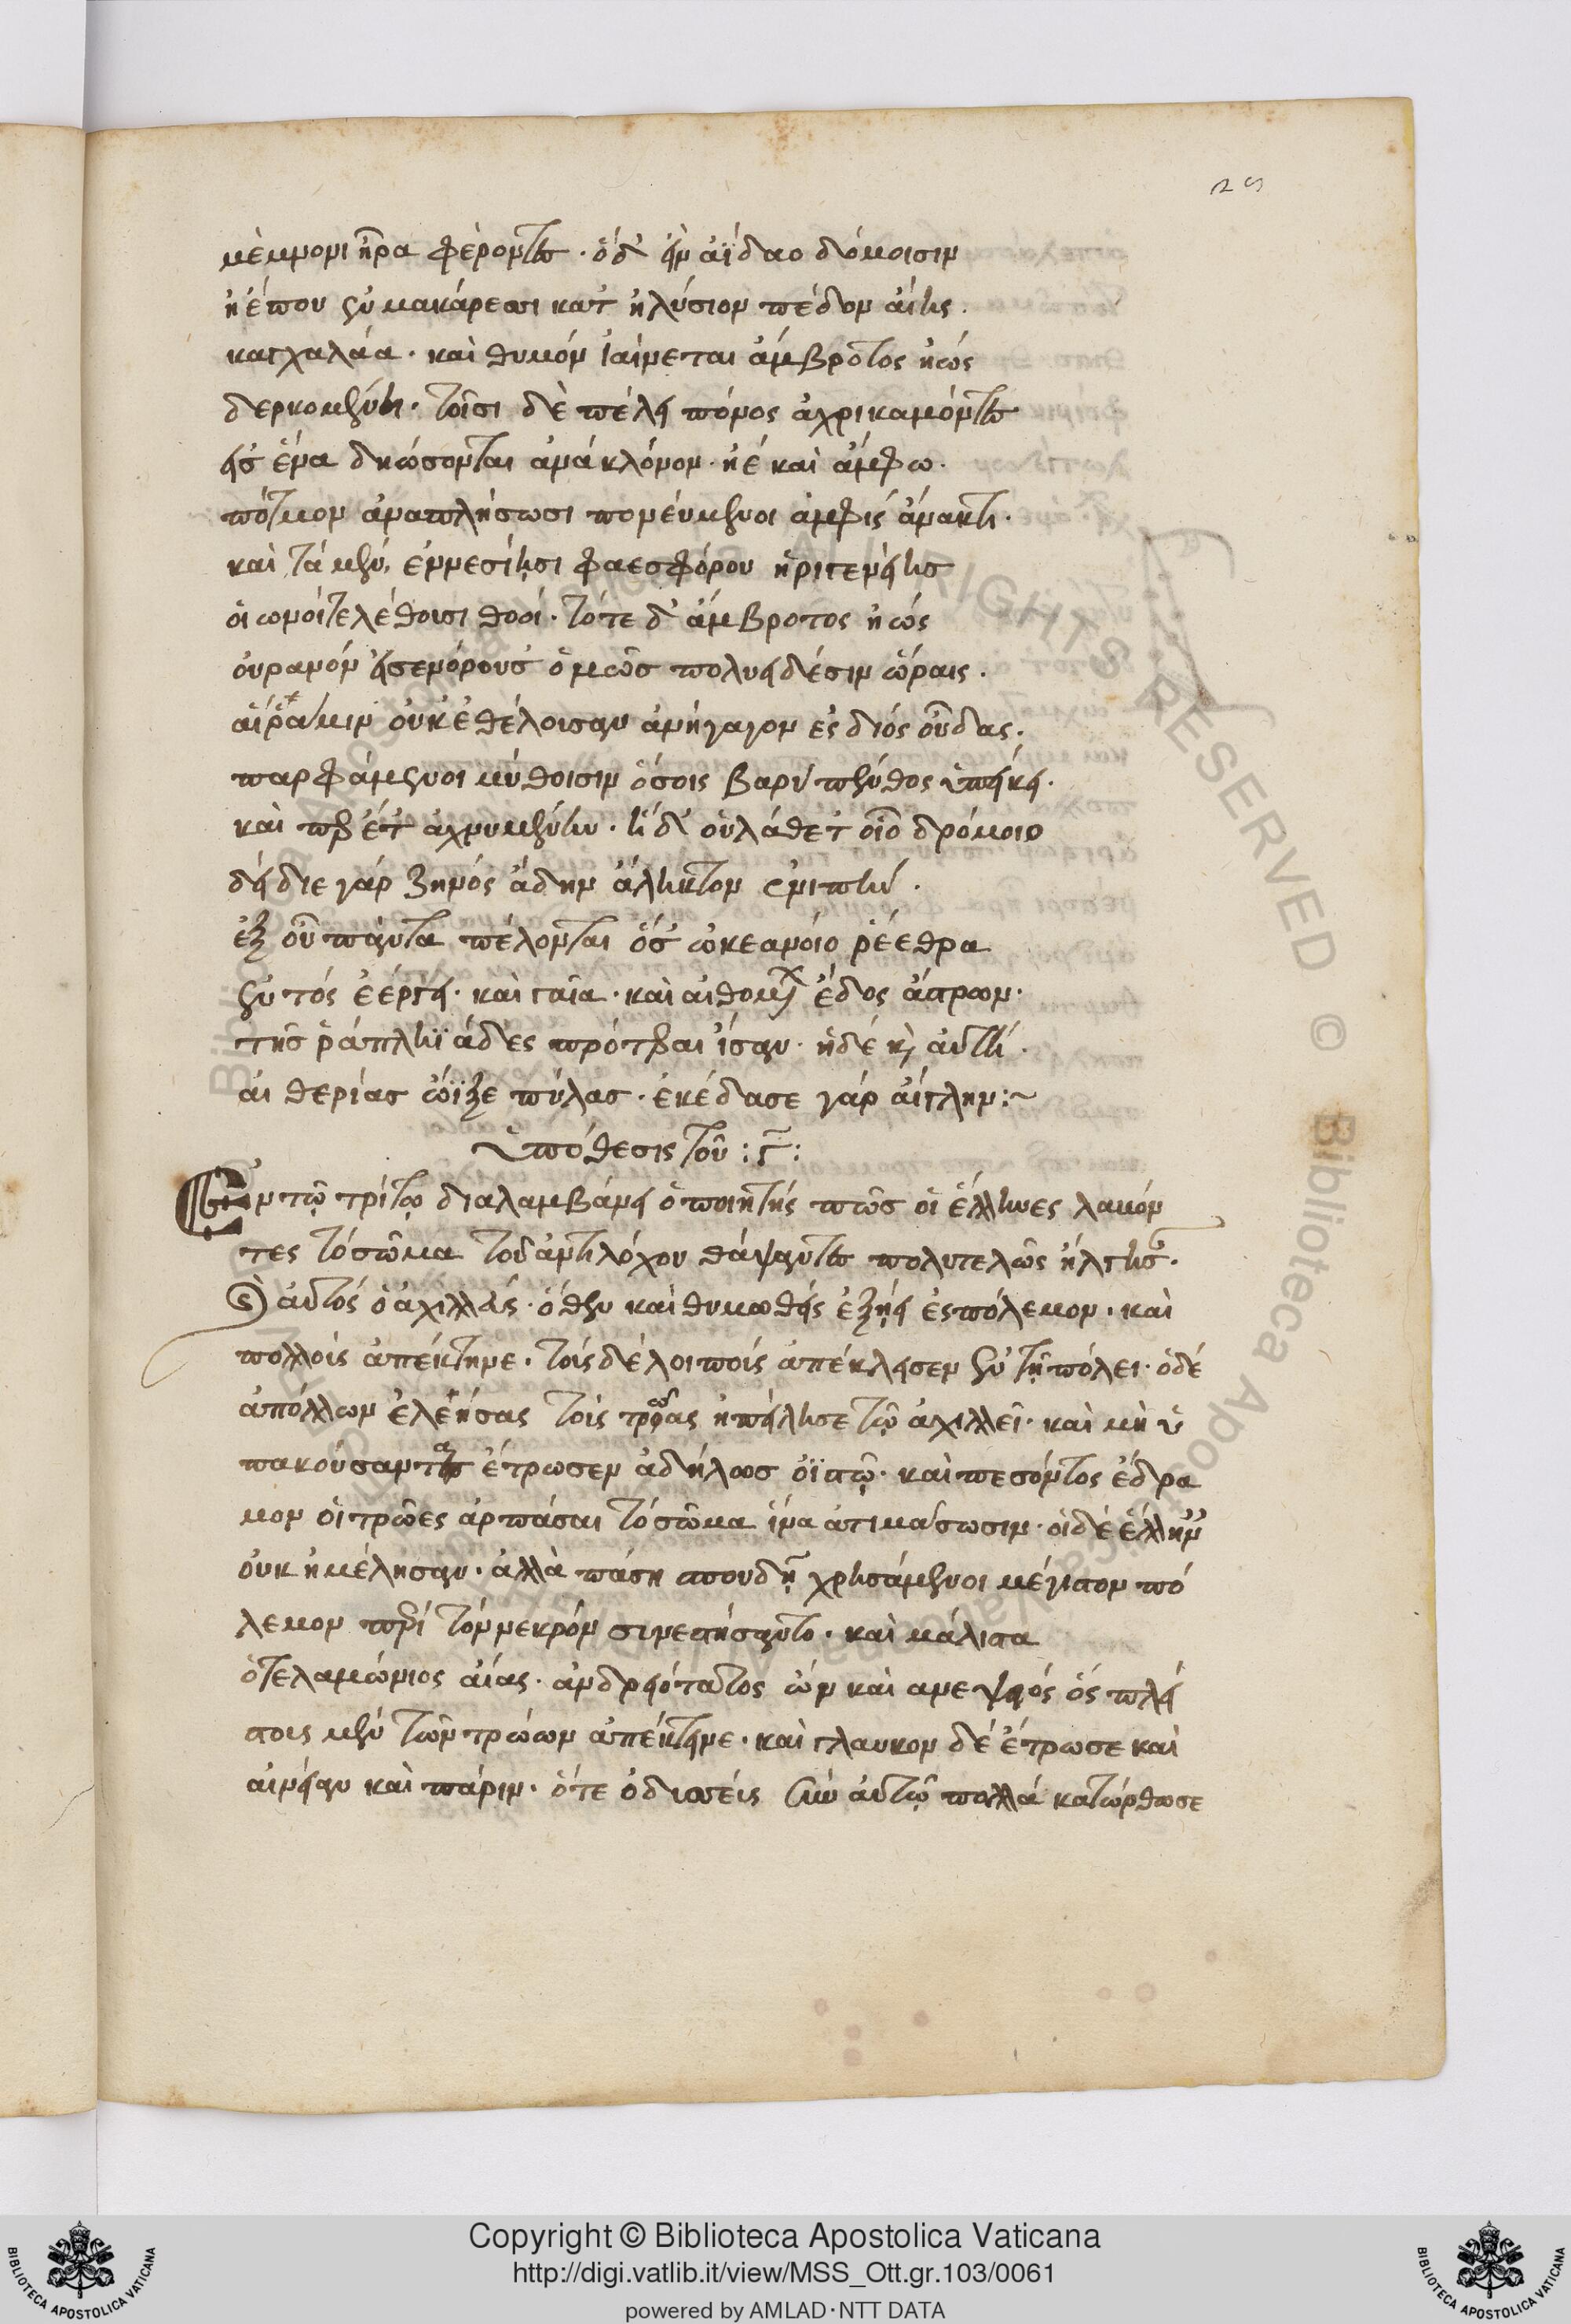 29
μέμνονι ἦρα φέροντες · ὁ δ' εἰν ἀΐδαο δόμοισιν
ἠέ που ἐν μακάρεσσι κατ' ἠλύσιον πέδον αἴης ·
καγχαλάα · καὶ θυμὸν ἰαίνεται ἄμβροτος ἠώς
δερκομένη · τοῖσι δὲ πέλει πόνος ἄχρι καμόντες
εἰς ἕνα δηώσονται ἀνὰ κλόνον · ἠέ καὶ ἄμφω ·
πότμον ἀναπλήσωσι πονεύμενοι ἀμφὶς ἄνακτι ·
καὶ τὰ μὲν ἐννεσίῃσι φαεσφόρου ἠριγενείης
οἰωνοὶ τελέθουσι θοοί · τότε δ' ἄμβροτος ἠώς
οὐρανὸν εἰσενόρουσ' ὁμῶς πολυειδέσιν ὥραις ·
αἵ ῥά μιν οὐκ ἐθέλουσαν ἀνήγαγον ἐς διὸς οὖδας ·
παρφάμεναι μύθοισιν ὅσοις βαρὺ πένθος ὑπείκει ·
καὶ περ ἔτ' ἀχνυμένην · ἡ δ' οὐ λάθετ' οἷο δρόμοιο
δείδιε γὰρ ζηνὸς ἄδην ἄλληκτον ἐνιπήν ·
ἐξ οὗ πάντα πέλονται ὅσ' ὠκεανοῖο ῥέεθρα
ἐντὸς ἐέργει · καὶ γαῖα · καὶ αἰθομένων ἕδος ἄστρων ·
τῆς ῥα πληϊάδες πρότεραι ἴσαν · ἠδέ καὶ αὐτή ·
αἰθερίας ὤϊξε πύλας · ἐκέδασε γὰρ αἴγλην :~
ὑπόθεσις τοῦ : γ :
Ἐν τῷ τρίτῳ διαλαμβάνει ὁ ποιητής πῶς οἱ ἕλληνες λαβόν
τες τὸ σῶμα τοῦ ἀντιλόχου θάψαντες πολυτελῶς ἤλγησαν ·
καὶ αὐτὸς ὁ ἀχιλλεύς · ὅθεν καὶ θυμωθείς ἐξῄει ἐς πόλεμον · καὶ
πολλοὺς ἀπέκτηνε · τοὺς δὲ λοιποὺς ἀπέκλεισεν ἐν τῇ πόλει · ὁ δέ
ἀπόλλων ἐλεήσας τοὺς τρῶας ἠπείλησε τῷ ἀχιλλεῖ · καὶ μὴ ὑ
πακούσαντα ἔτρωσεν ἀδήλως ὀϊστῷ · καὶ πεσόντος ἔδρα
μον οἱ τρῶες ἁρπάσαι τὸ σῶμα ἵνα ἀτιμάσωσιν · οἱ δέ ἕλληνες
οὐκ ἠμέλησαν · ἀλλὰ πάσῃ σπουδῇ χρησάμενοι μέγιστον πό
λεμον περὶ τὸν νεκρόν συνεστήσαντο · καὶ μάλιστα
ὁ τελαμώνιος αἴας · ἀνδρειότατος ὤν καὶ ἀνεψιός ὅς πλεί
στους μὲν τῶν τρώων ἀπέκτεινε · καὶ γλαῦκον δέ ἔτρωσε καὶ
αἰνείαν καὶ πάριν · ὅτε ὀδυσσεύς σὺν αὐτῷ πολλά κατώρθωσε
Biblioteca Apostolica Vaticana ALL RIGHTS RESERVED ©
BIBLIOTECA APOSTOLICA VATICANA
Copyright © Biblioteca Apostolica Vaticana
http://digi.vatlib.it/view/MSS_Ott.gr.103/0061
powered by AMLAD·NTT DATA
BIBLIOTECA APOSTOLICA VATICANA